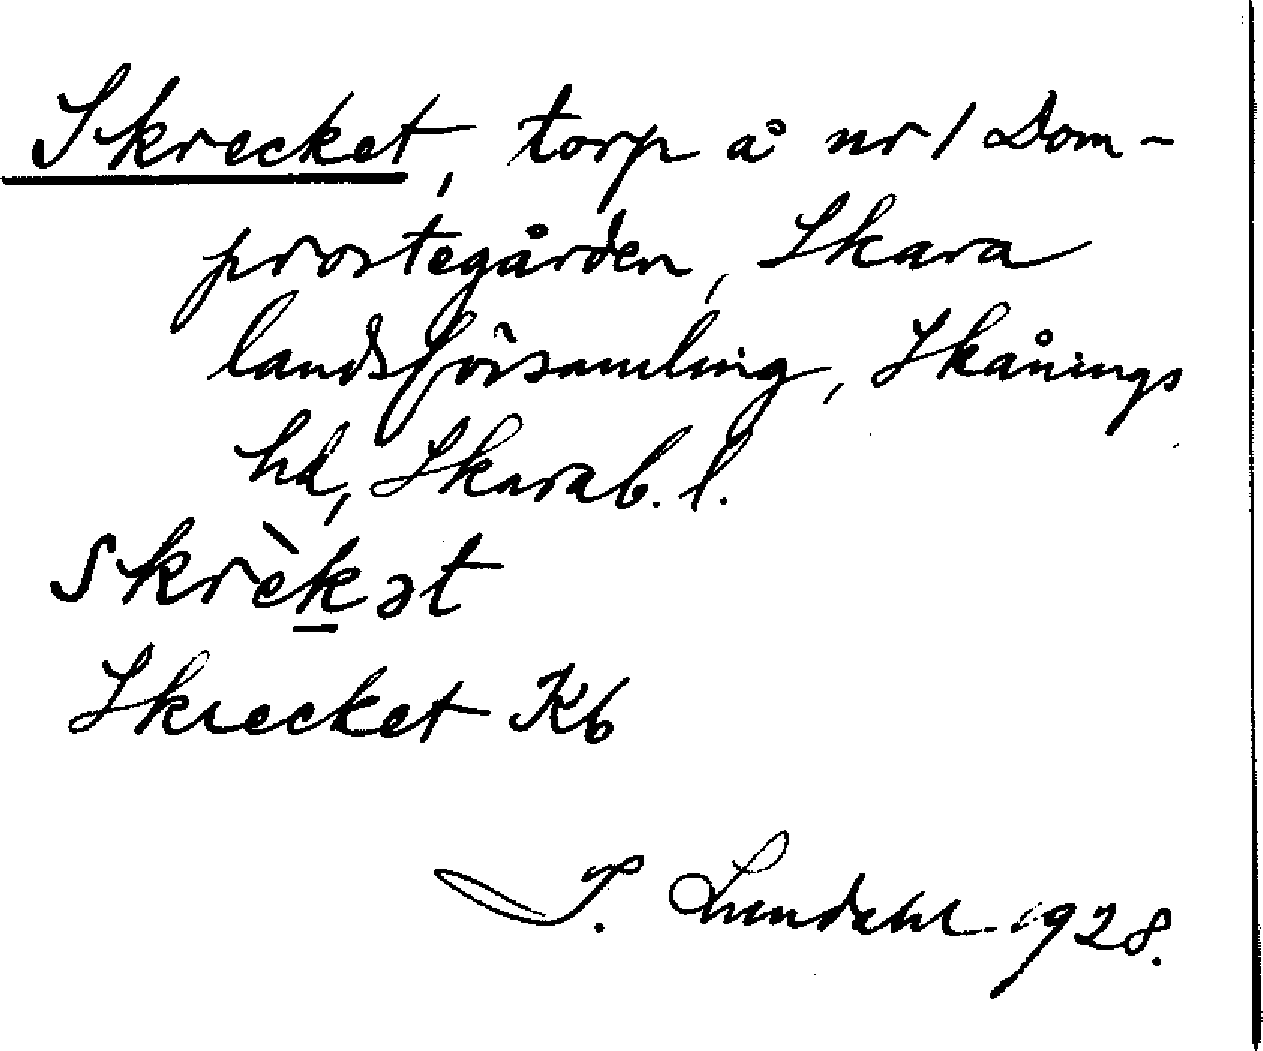 Skrecket, torp å nr 1 Dom-
prostegården, Skara
landsförsamling, Skånings
hd, Skarab. l.
skrèk̲ət
Skrecket Kb
I. Lundahl 1928.